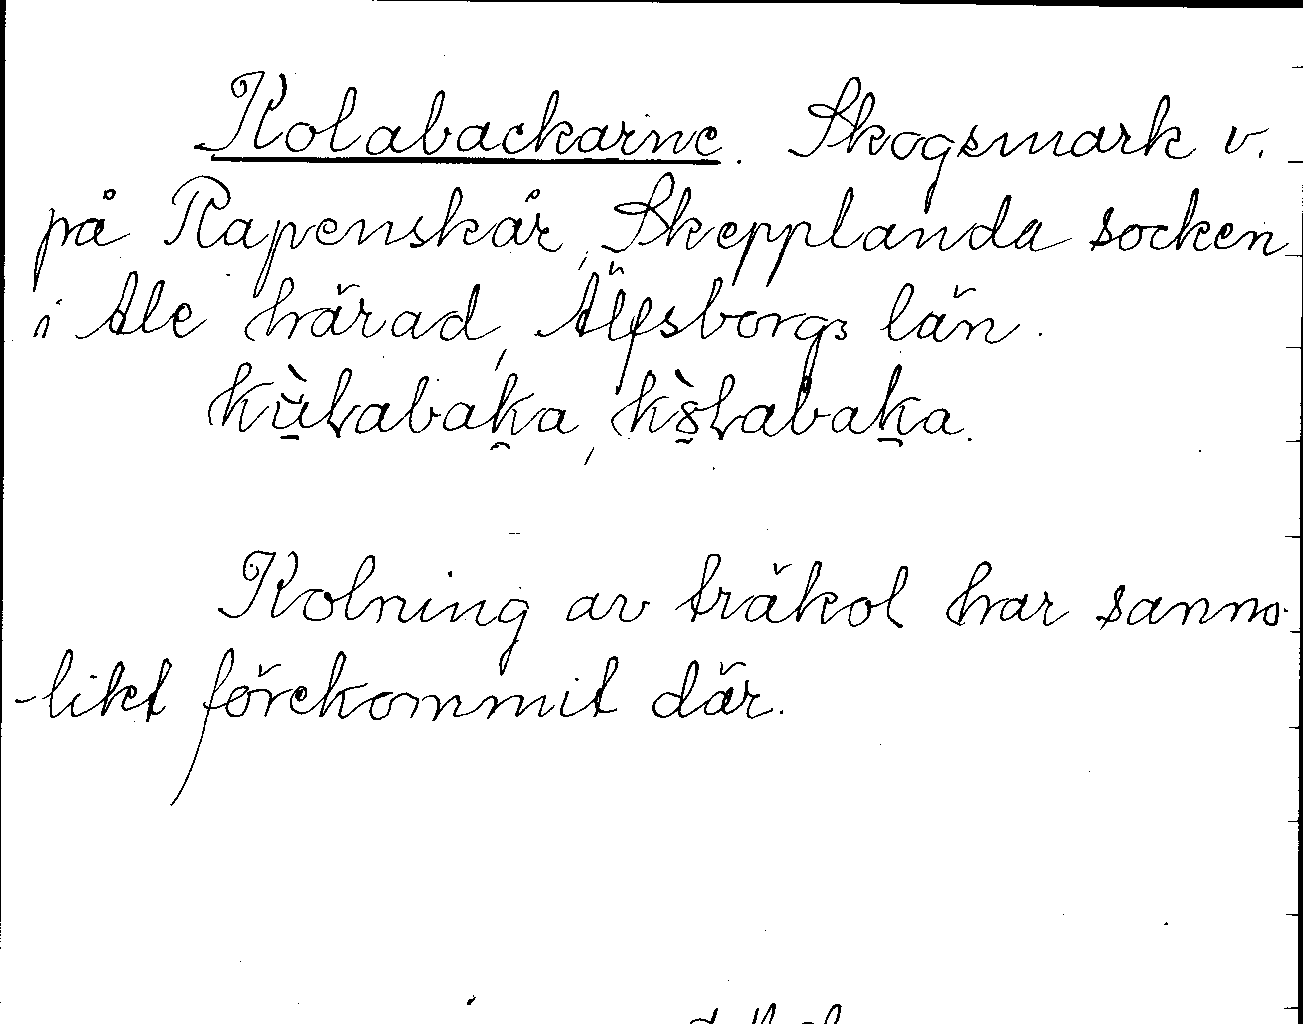 Kolabackarne. Skogsmark v.
på Rapenskår, Skepplanda socken
i Ale härad, Älfsborgs län.
Kolning av träkol har sanno-
-likt förekommit där.